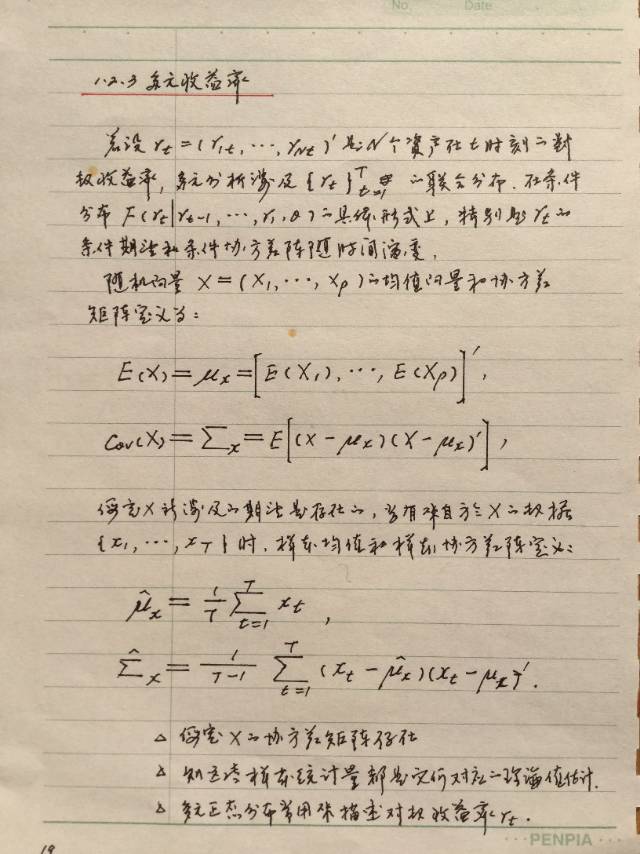 No. Date
1.2.3 多元收益率
若设 rt = (r1t, ···, rNt)′ 是 N 个资产在 t 时刻的对
数收益率, 多元分析涉及 {rt}ᵀt=1 的联合分布. 在条件
分布 F(rt|rt-1, ···, r1, θ) 的具体形式上, 特别是 rt 的
条件期望和条件协方差阵随时间演变.
随机向量 X = (X1, ···, Xp) 的均值向量和协方差
矩阵定义为:
E(X) = μx = [E(X1), ···, E(Xp)]′,
Cov(X) = Σx = E[(X-μx)(X-μx)′],
假定 X 所涉及的期望是存在的, 当有来自于 X 的数据
{x1, ···, xT} 时, 样本均值和样本协方差阵定义:
μ̂x = 1/T Σᵀt=1 xt ,
Σ̂x = 1/(T-1) Σᵀt=1 (xt - μ̂x)(xt - μx)′.
△ 假定 X 的协方差矩阵存在
△ 则这些样本统计量都是它们对应的 值估计.
△ 多元正态分布常用来描述对数收益率 rt.
19
···PENPIA···